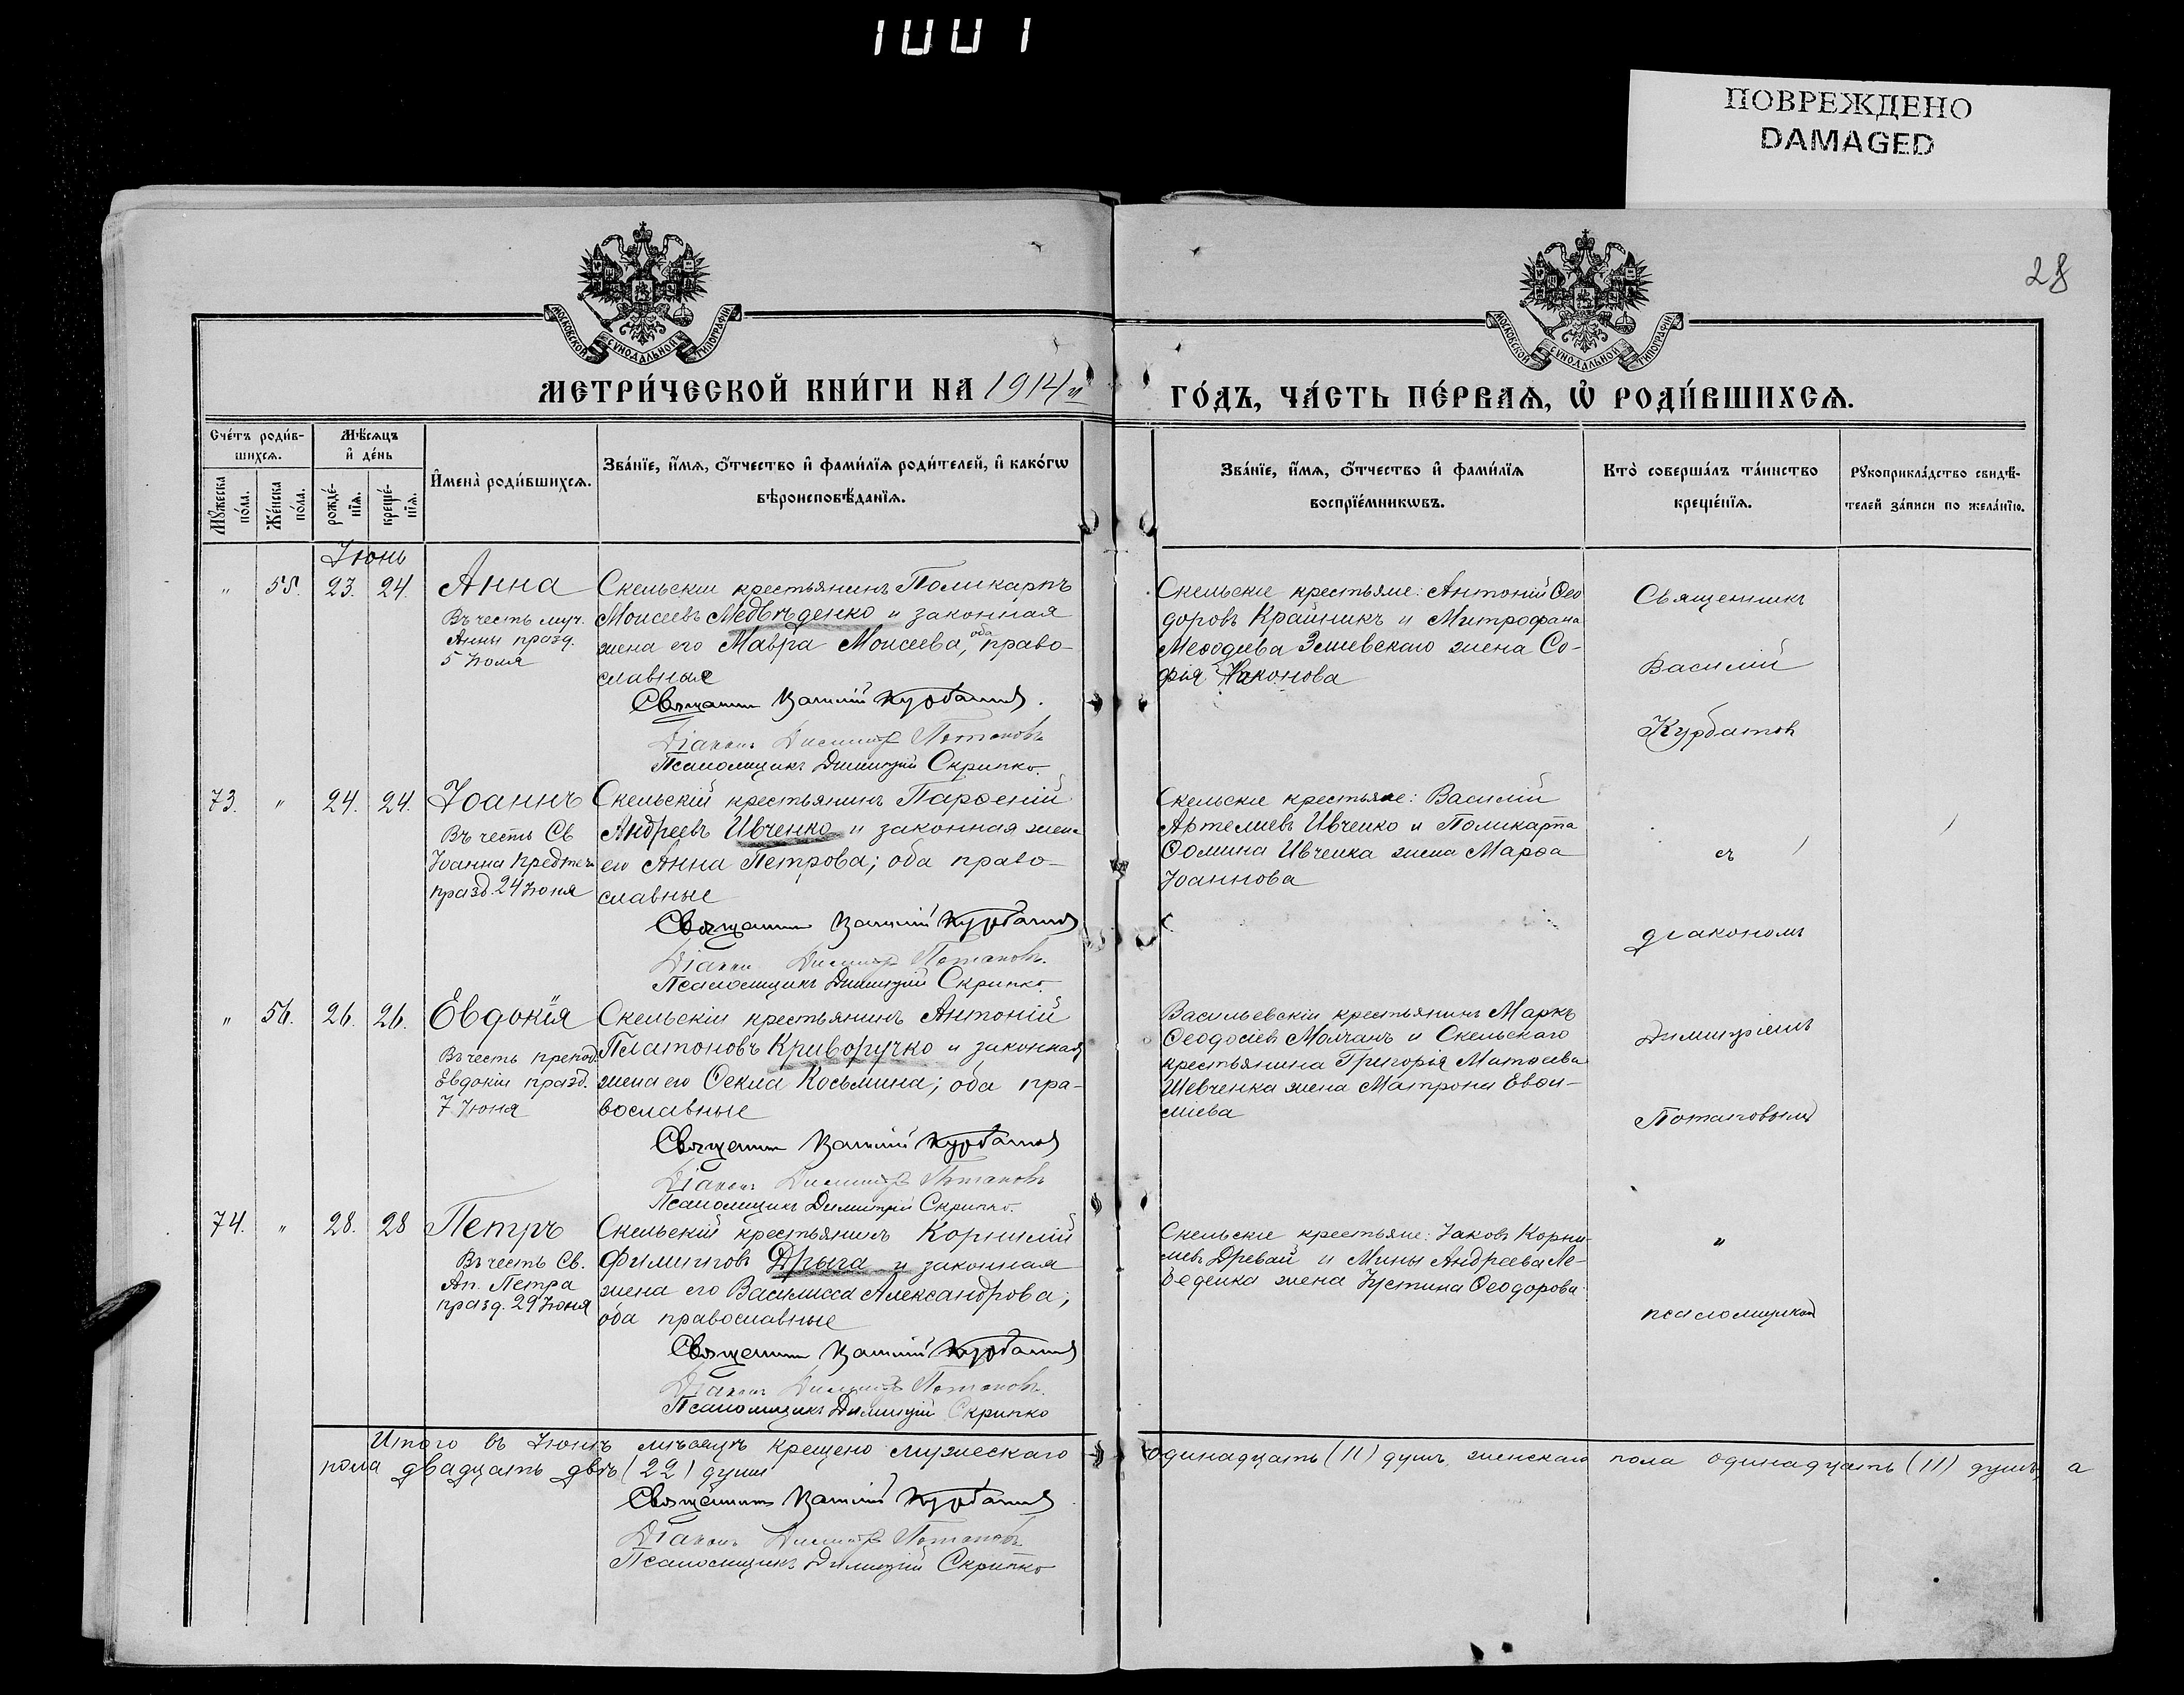 1001
ПОВРЕЖДЕНО
DAMAGED
28
МОСКОВСКОЙ СѴНОДАЛЬНОЙ ТИПОГРАФІИ
МОСКОВСКОЙ СѴНОДАЛЬНОЙ ТИПОГРАФІИ
МЕТРИ́ЧЕСКОЙ КНИ́ГИ НА 1914й
ГО́ДЪ, ЧА́СТЬ ПЕ́РВАѦ, Ѡ҆ РОДИ́ВШИХСѦ.
Сче́тъ роди́в-
шихсѧ.
Мѣ́сѧцъ
и҆ де́нь
Мꙋ́жеска
по́ла.
Же́нска
по́ла.
рожде́-
нїѧ.
креще́-
нїѧ.
И҆мена̀ роди́вшихсѧ.
Зва́нїе, и҆́мѧ, ѻ҆́тчество и҆ фами́лїѧ роди́телей, и҆ како́гѡ
вѣроисповѣ́данїѧ.
Зва́нїе, и҆́мѧ, ѻ҆́тчество и҆ фами́лїѧ
воспрїе́мникѡвъ.
Кто̀ соверша́лъ та́инство
креще́нїѧ.
Рꙋкоприкла́дство свидѣ́-
телей за́писи по жела́нїю.
Іюнь
" 55. 23. 24. Анна
Въ честь муч.
Анны празд.
5 Іюля
Скельскій крестьянинъ Поликарпъ
Моисеевъ Медвѣденко и законная
жена его Мавра Моисеева, оба право-
славные
Священникъ Василій Курбатовъ.
Діаконъ Димитрій Потаповъ
Псаломщикъ Димитрій Скрипко.
Скельскіе крестьяне: Антоній Ѳео
доровъ Крайникъ и Митрофана
Меѳодіева Змиевскаго жена Со-
фія Никонова
Священникъ
Василій
Курбатовъ
73. " 24. 24. Іоаннъ
Въ честь Св
Іоанна Предтечи
празд. 24 Іюня
Скельскій крестьянинъ Парѳеній
Андреевъ Ивченко и законная жена
его Анна Петрова; оба право-
славные
Священникъ Василій Курбатовъ
Діаконъ Димитрій Потаповъ.
Псаломщикъ Димитрій Скрипко.
Скельскіе крестьяне: Василій
Артемиевъ Ивченко и Поликарпа
Ѳомина Ивченка жена Марѳа
Іоаннова
съ
діакономъ
" 56. 26. 26. Евдокія
Въ честь препод.
Евдокіи празд.
7 Іюня
Скельскій крестьянинъ Антоній
Платоновъ Криворучко и законная
жена его Ѳекла Косьмина; оба пра-
вославные
Священникъ Василій Курбатовъ
Діаконъ Димитрій Потаповъ
Псаломщикъ Димитрій Скрипко.
Васильевскій крестьянинъ Маркъ
Ѳеодосіевъ Молчанъ и Скельскаго
крестьянина Григорія Матѳеева
Шевченка жена Матрона Евѳи-
міева
Димитріемъ
Потаповымъ
74. " 28. 28 Петръ
Въ честь Св.
Ап. Петра
празд. 29 Іюня
Скельскій крестьянинъ Корнилій
Филипповъ Дрыга и законная
жена его Василисса Александрова;
оба православные
Священникъ Василій Курбатовъ
Діаконъ Димитрій Потаповъ.
Псаломщикъ Димитрій Скрипко
Скельскіе крестьяне: Іаковъ Корни-
ліевъ Древай и Мины Андреева Ле-
беденка жена Іустина Ѳеодорова
и
псаломщикомъ
Итого въ Іюнѣ мѣсяцѣ крещено мужескаго
одинадцать (11) душъ, женскаго пола одинадцать (11) душъ, а
пола двадцать двѣ (22) души
Священникъ Василій Курбатовъ
Діаконъ Димитрій Потаповъ
Псаломщикъ Димитрій Скрипко